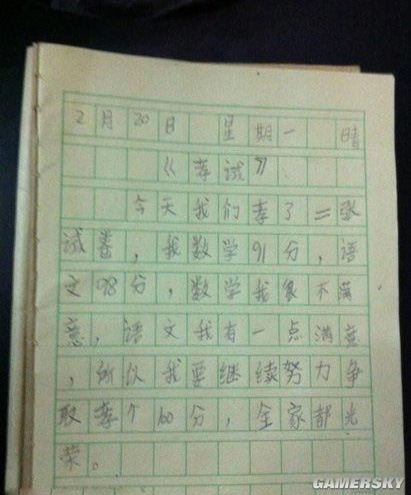 2月20日 星期一 晴
《考试》
今天我们考了二张
试卷，我数学91分，语
文98分，数学我很不满
意，语文我有一点满意
，所以我要继续努力争
取考个100分，全家都光
荣。
GAMERSKY